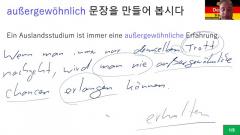 außergewöhnlich 문장을 만들어 봅시다
Ein Auslandsstudium ist immer eine außergewöhnliche Erfahrung.
Wenn man nur denselben Trott
nachgeht, wird man nie außergewöhnliche
chancen erlangen können.
erhalten